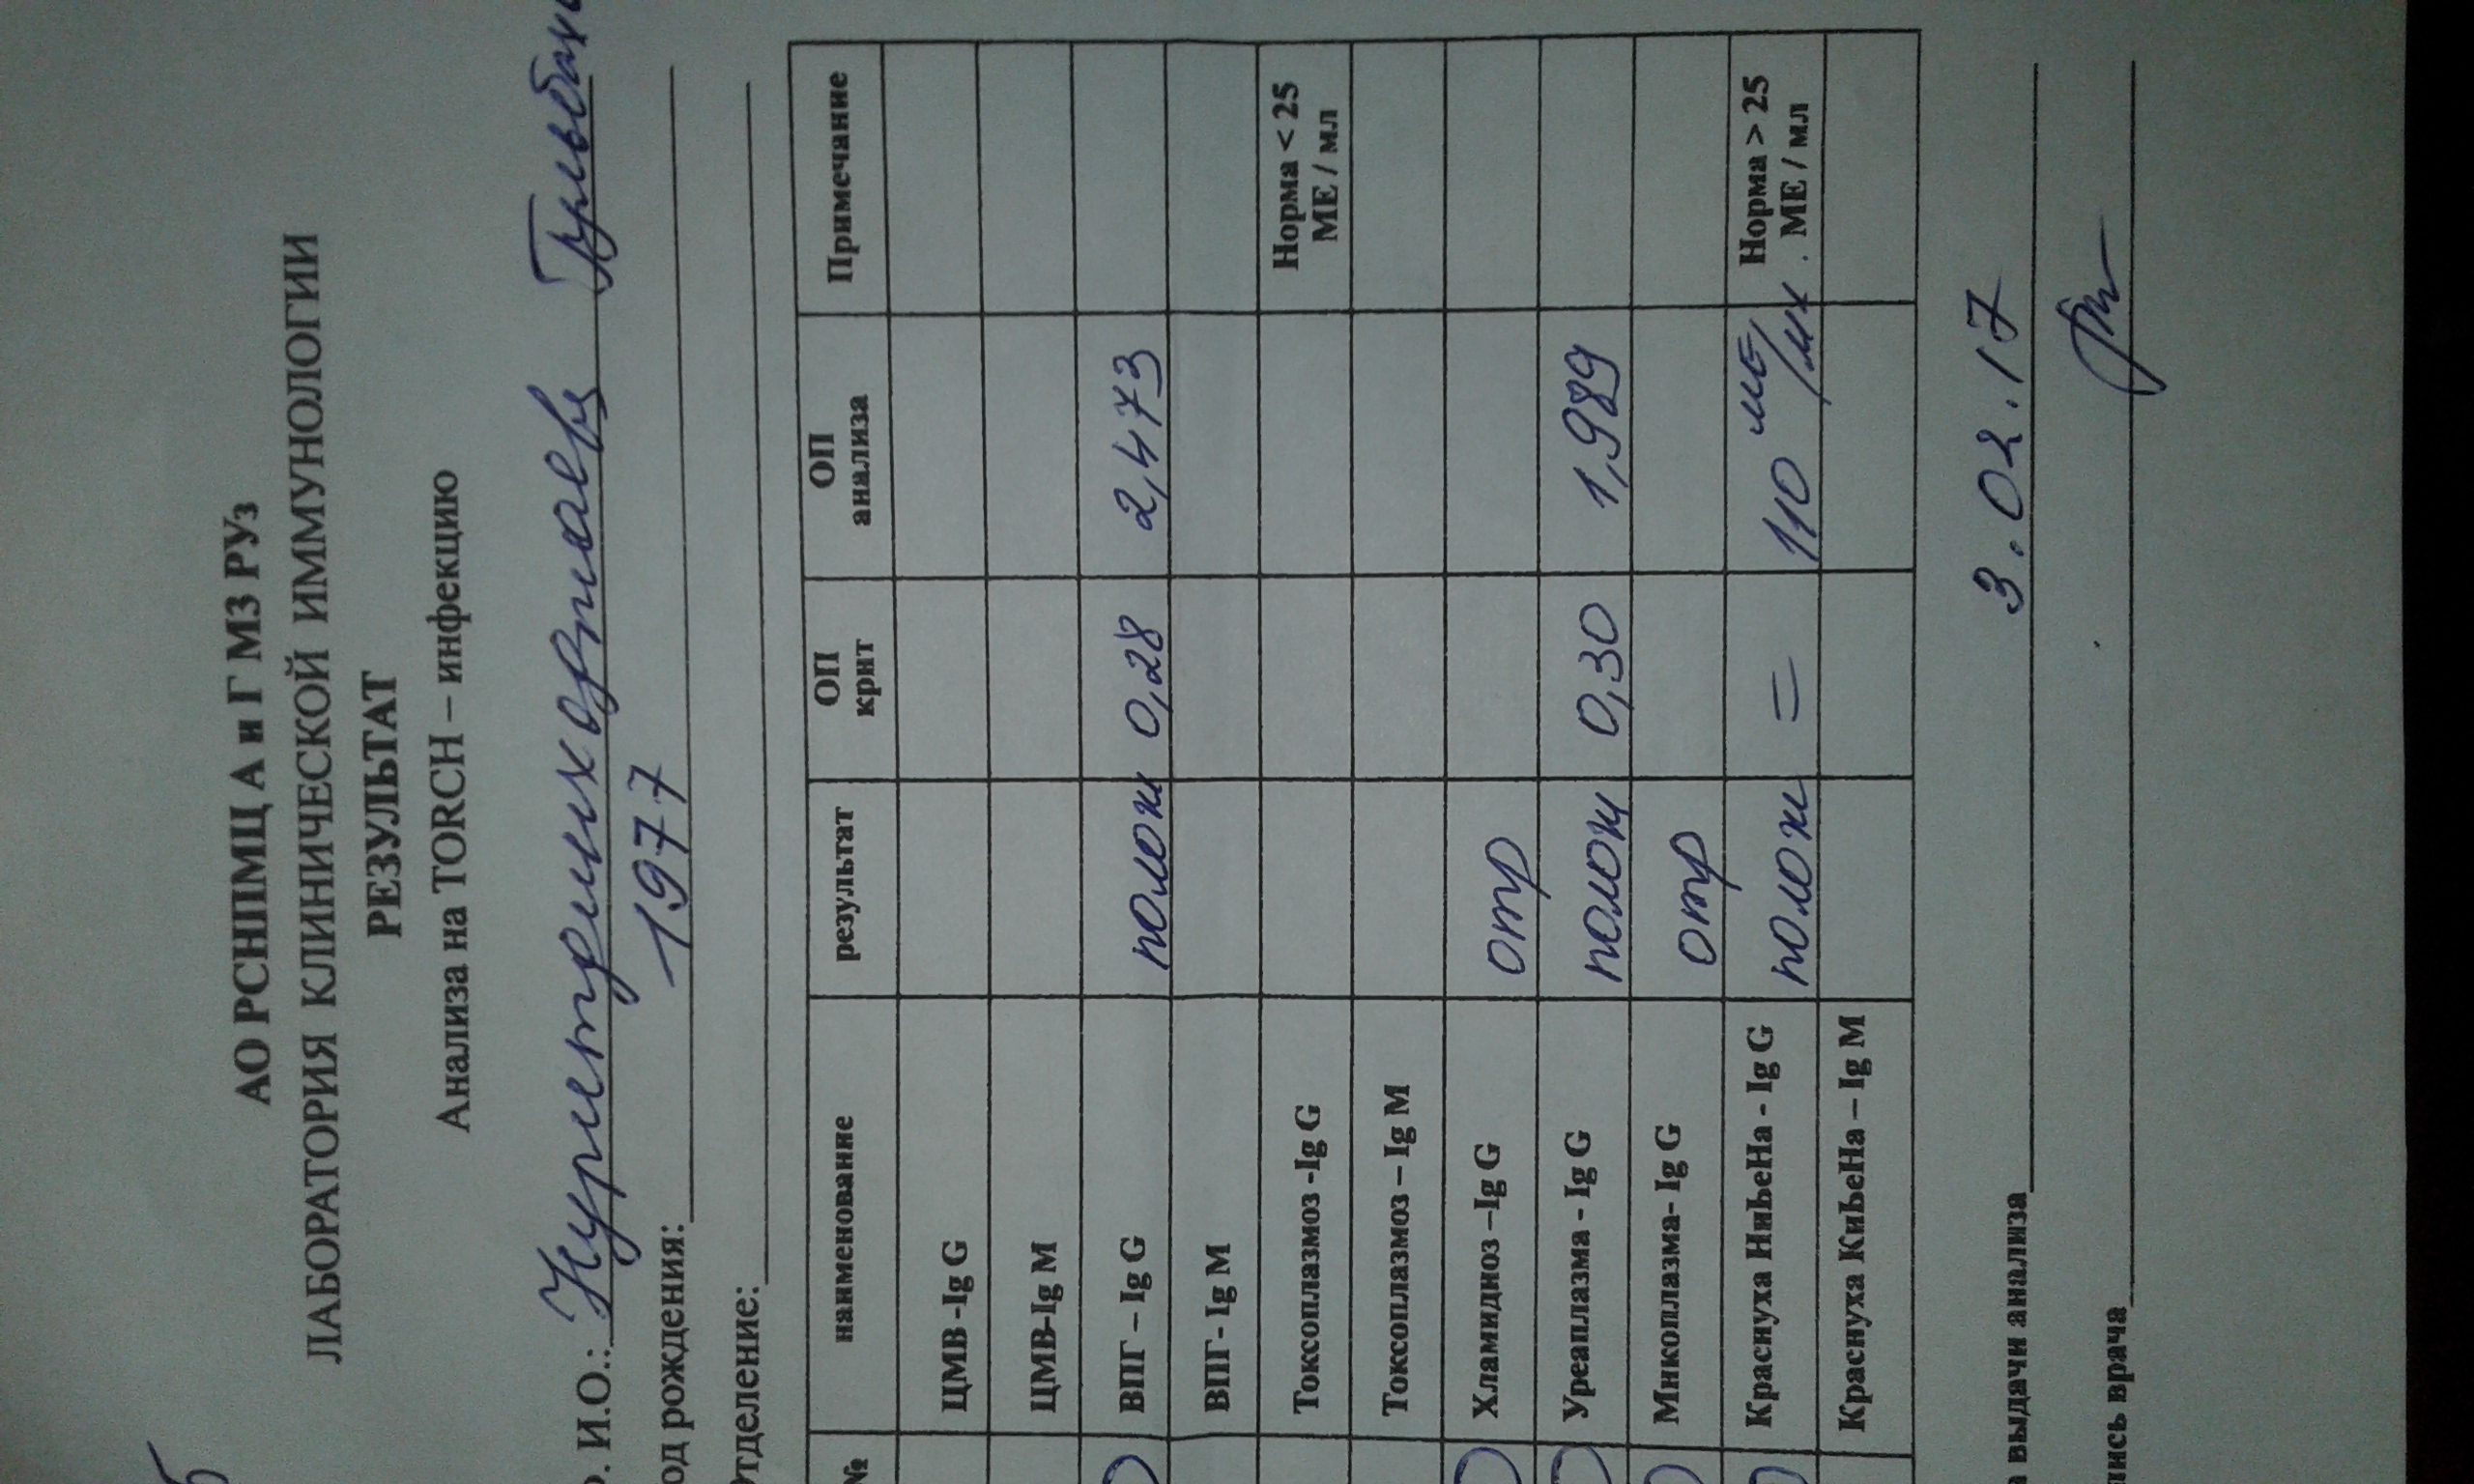 АО РСНПМЦ А и Г МЗ РУз
ЛАБОРАТОРИЯ КЛИНИЧЕСКОЙ ИММУНОЛОГИИ
РЕЗУЛЬТАТ
Анализа на TORCH – инфекцию
И.О.:
од рождения: 1977
тделение:
№ наименование результат ОП крит ОП анализа Примечание
ЦМВ -Ig G
ЦМВ-Ig M
ВПГ – Ig G полож 0,28 2,473
ВПГ- Ig M
Токсоплазмоз -Ig G Норма < 25 МЕ / мл
Токсоплазмоз – Ig M
Хламидиоз –Ig G отр
Уреаплазма - Ig G полож 0,30 1,989
Микоплазма- Ig G отр
Краснуха НиЬеНа - Ig G полож = 110 МЕ/мл Норма > 25 МЕ / мл
Краснуха КиЬеНа – Ig M
а выдачи анализа 3.02.17
пись врача